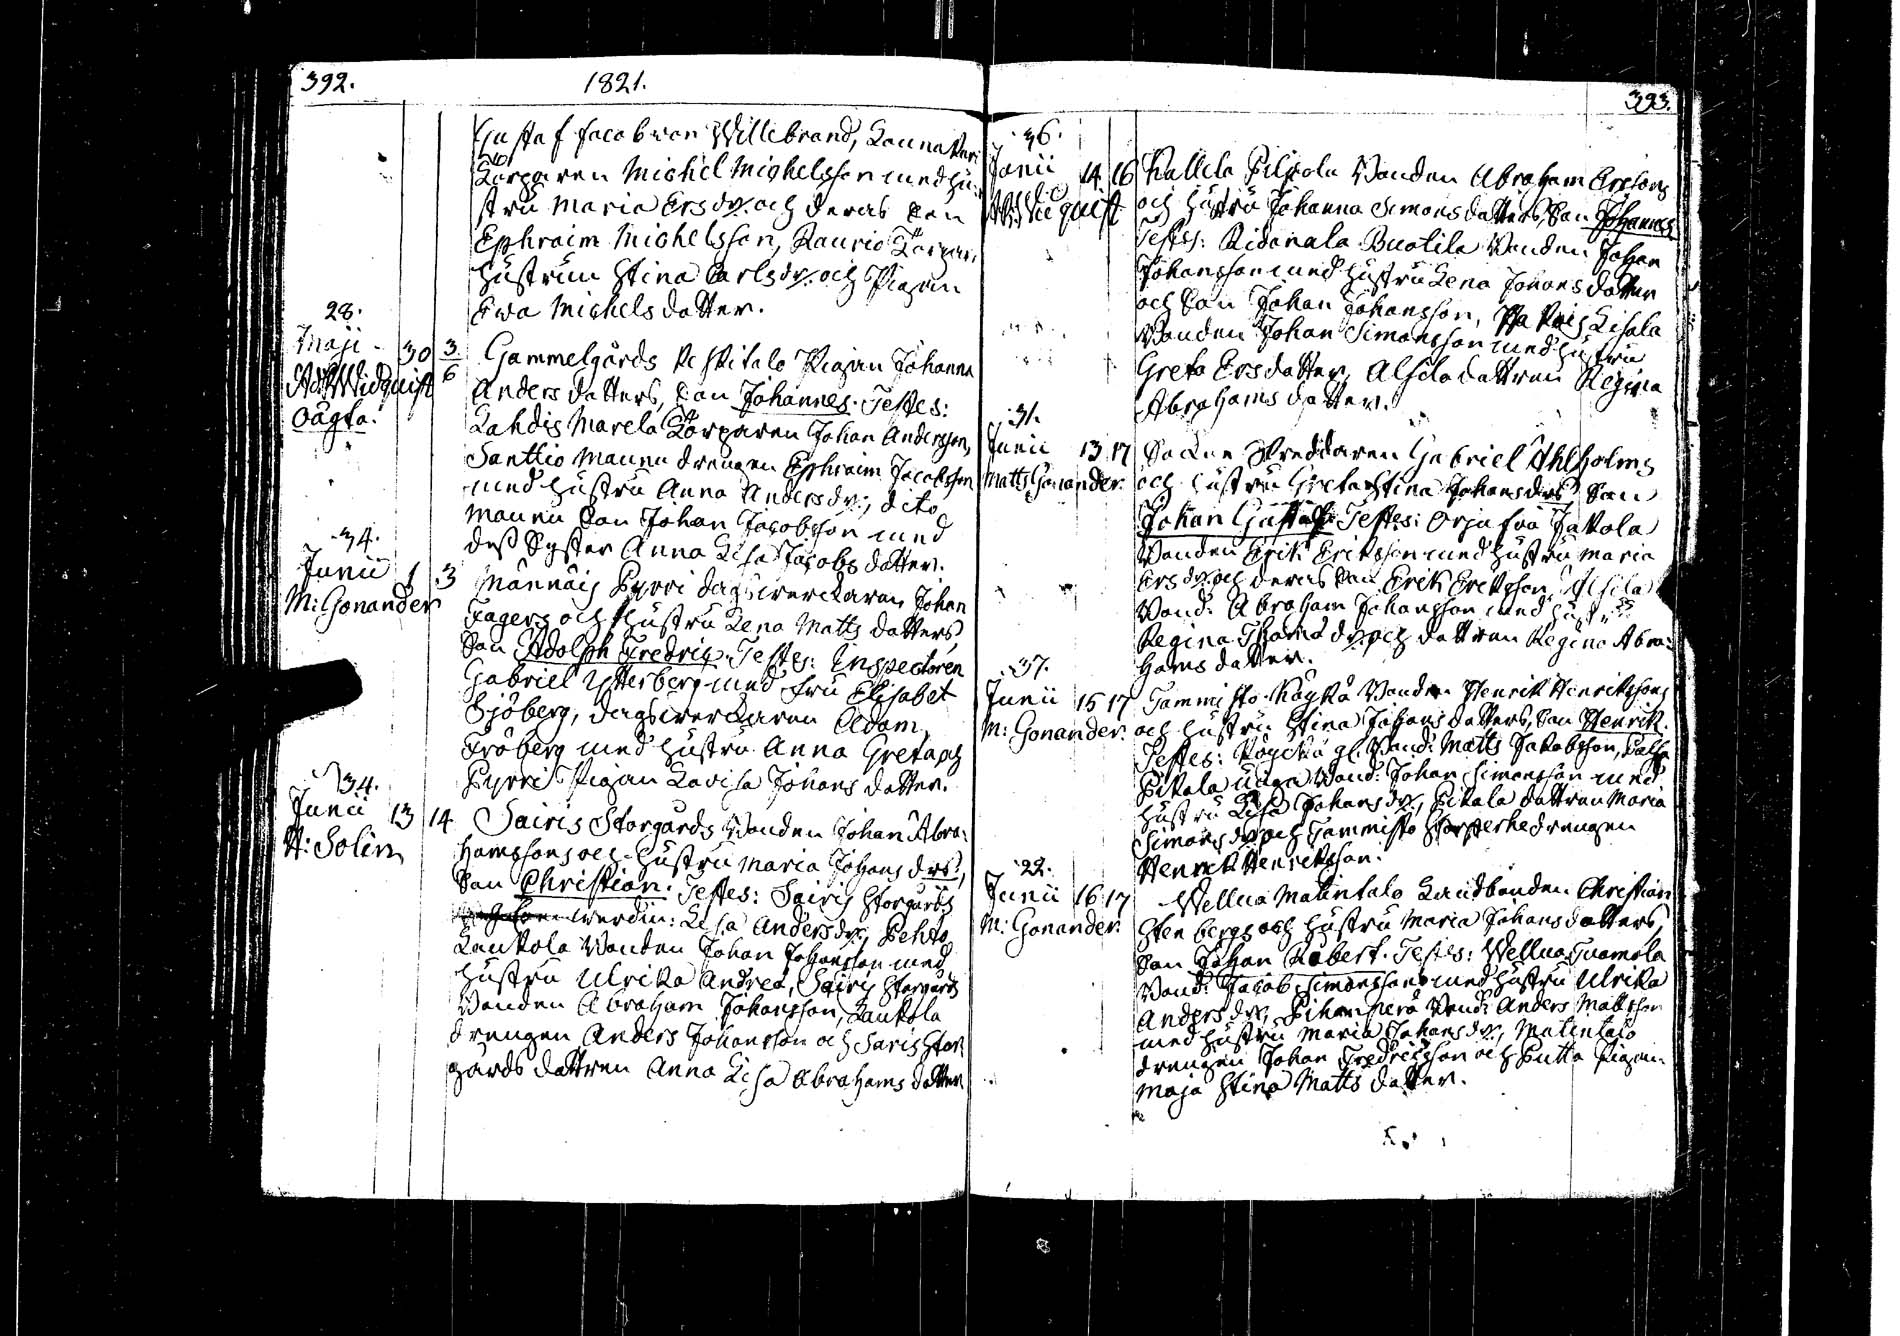 392.
1821.
Gustaf Jacob von Willebrand, Launakari
Torparen Michel Michelsson med hu-
stru Maria Ersdr. och deras Son
Ephraim Michelsson, Laurio Torpar
hustrun Stina Carlsdr. och Pigan
Ewa Michels dotter.
28.
Maji 30 3/6 Gammelgårds Pigan Johanna
Ad. Widquist Anders dotters, Son Johannes. Testes:
oägta. Lahdis Marela Torparen Johan Andersson,
Santtio Mannu drengen Ephraim Jacobsson
med hustru Anna Andersdr., dito
Mannu Son Johan Jacobsson med
dess Syster Anna Lisa Jacobs dotter.
34.
Junii 1 3 Männäis Pyrri dagsverckaren Johan
M: Gonander Fagers och hustru Lena Matts dotters,
Son Adolph Fredric. Testes: Inspectoren
Gabriel Ytterberg med Fru Elisabet
Sjöberg, dagsverckaren Adam
Fröberg med hustru Anna Greta och
Pyrri Pigan Lovisa Johans dotter.
34.
Junii 13 14 Sairis Storgårds Bonden Johan Abra-
H: Solin hamssons och hustru Maria Johans drs,
Son Christian. Testes: Sairis Storgårds
werdin: Lisa Andersdr., Pehto
Kaukola Bonden Johan Johansson med
hustru Ulrika Andrea, Sairis Storgårds
Bonden Abraham Johansson, Kaukola
drengen Anders Johansson och Saris Stor
gårds dottren Anna Lisa Abrahams dotter
393.
36.
Junii 14 16 Kallela Pilpola Bonden Abraham Ersons
och hustru Johanna Simons dotters, Son Johannes
Testes: Ridonala Buotila Bonden Johan
Johansson med hustru Lena Johans dotter
och Son Johan Johansson, Lisala
Bonden Johan Simonsson med hustru
Greta Ersdotter, Alsila dottren Regina
Abrahams dotter.
31.
Junii 13 17 Sockne Skreddaren Gabriel Ahlholms
Matts Gonander. och hustru Greta Stina Johansdrs Son
Johan Gustaf. Testes: Orjasaa Jakola
Bonden Erik Eriksson med hustru Maria
Ersdr. och deras Son Erik Eriksson, Alsila
Bond: Abraham Johansson med hustru
Regina Thomas dr. och dottren Regina Abra-
hams dotter.
37.
Junii 15 17 Tammisto Köykkä Bonden Henrik Henrikssons
M: Gonander. och hustru Stina Johans dotters, Son Henrik.
Testes: gl. Bond: Matts Jakobsson,
Pikala unga Bond: Johan Simonsson med
hustru Lisa Johansdr., Pikala dottren Maria
Simonsdr. och Tammisto drengen
Henrik Henriksson.
22.
Junii 16 17 Wellua Matintalo Landbonden Christian
M: Gonander. Stenbergs och hustru Maria Johans dotters,
Son Johan Robert. Testes: Wellua Tuomola
Bond: Jacob Simonsson med hustru Ulrika
Andersdr., Pihamperä Bond: Anders Mattsson
med hustru Maria Johansdr., Matintalo
drengen Johan Fredriksson och Putta Pigan
Maja Stina Matts dotter.